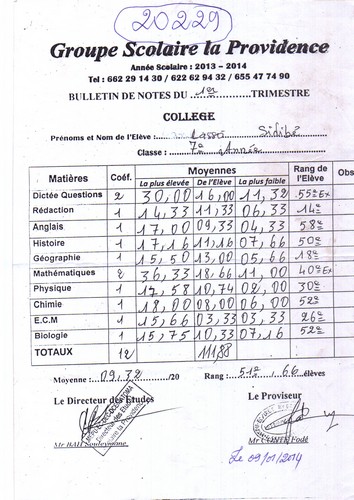 20229
Groupe Scolaire la Providence
Année Scolaire : 2013 - 2014
Tel : 662 29 14 30 / 622 62 94 32 / 655 47 74 90
BULLETIN DE NOTES DU 1er TRIMESTRE
COLLEGE
Prénoms et Nom de l'Elève : Lasso Sidibé
Classe : 7e Année
Matières Coéf. Moyennes Rang de l'Elève Obs
La plus élevée De l'Elève La plus faible
Dictée Questions 2 30,00 16,00 11,32 55e Ex
Rédaction 1 14,33 11,33 06,33 14e
Anglais 1 17,00 09,33 04,33 58e
Histoire 1 17,16 11,16 07,66 50e
Géographie 1 15,50 13,00 05,66 18e
Mathématiques 2 36,33 18,66 11,00 40e Ex
Physique 1 17,58 10,74 02,00 30e
Chimie 1 18,00 08,00 06,00 52e
E.C.M 1 15,66 03,33 03,33 26e
Biologie 1 15,75 10,33 07,16 52e
TOTAUX 12 111,88
Moyenne : 09,32 /20 Rang : 51e / 66 élèves
Le Directeur des Etudes Le Proviseur
Mr BAH Souleymane Mr CONTE Fodé
Le 09/01/2014